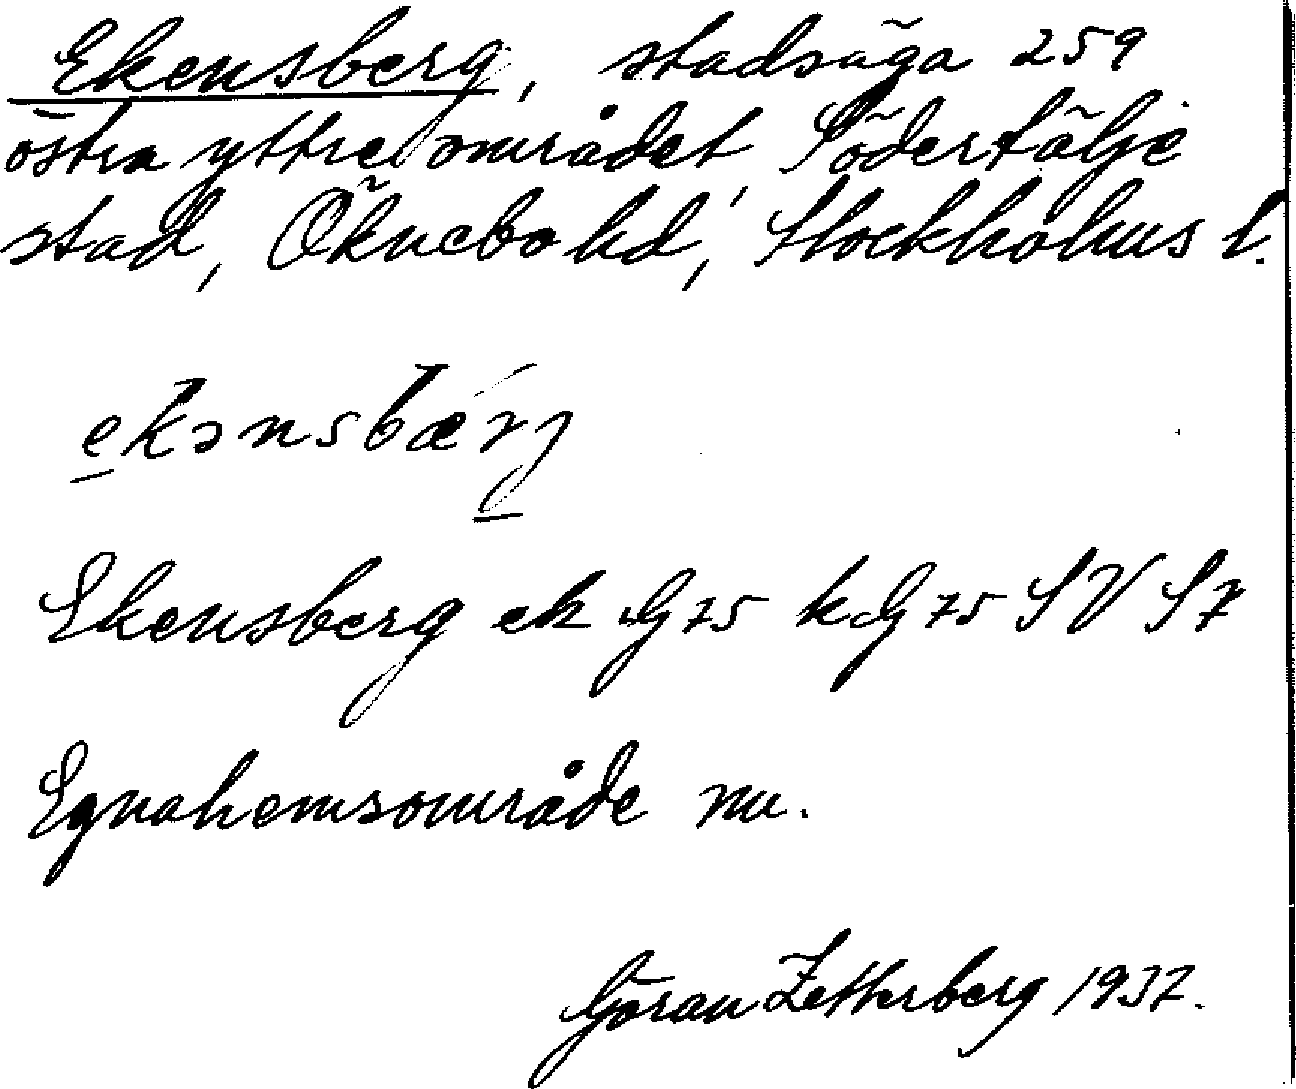 Ekensberg, stadsäga 259
östra yttre området, Södertälje
stad, Öknebo hd, Stockholms l.
ekənsbærj
Ekensberg ek G75 k.G 75 SV S7
Egnahemsområde nu.
Göran Zetterberg 1937.